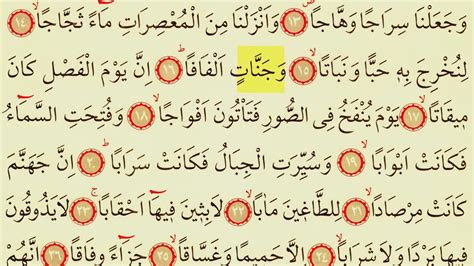 وَجَعَلْنَا سِرَاجًا وَهَّاجًا ﴿١٣﴾ وَاَنْزَلْنَا مِنَ الْمُعْصِرَاتِ مَٓاءً ثَجَّاجًا ﴿١٤﴾
لِنُخْرِجَ بِه۪ حَبًّا وَنَبَاتًا ﴿١٥﴾ وَجَنَّاتٍ اَلْفَافًا ﴿١٦﴾ اِنَّ يَوْمَ الْفَصْلِ كَانَ
م۪يقَاتًا ﴿١٧﴾ يَوْمَ يُنْفَخُ فِى الصُّورِ فَتَاْتُونَ اَفْوَاجًا ﴿١٨﴾ وَفُتِحَتِ السَّمَٓاءُ
فَكَانَتْ اَبْوَابًا ﴿١٩﴾ وَسُيِّرَتِ الْجِبَالُ فَكَانَتْ سَرَابًا ﴿٢٠﴾ اِنَّ جَهَنَّمَ
كَانَتْ مِرْصَادًا ﴿٢١﴾ لِلطَّاغ۪ينَ مَاٰبًا ﴿٢٢﴾ لَابِث۪ينَ ف۪يهَٓا اَحْقَابًا ﴿٢٣﴾ لَايَذُوقُونَ
ف۪يهَا بَرْدًا وَلَا شَرَابًا ﴿٢٤﴾ اِلَّا حَم۪يمًا وَغَسَّاقًا ﴿٢٥﴾ جَزَٓاءً وِفَاقًا ﴿٢٦﴾ اِنَّهُمْ